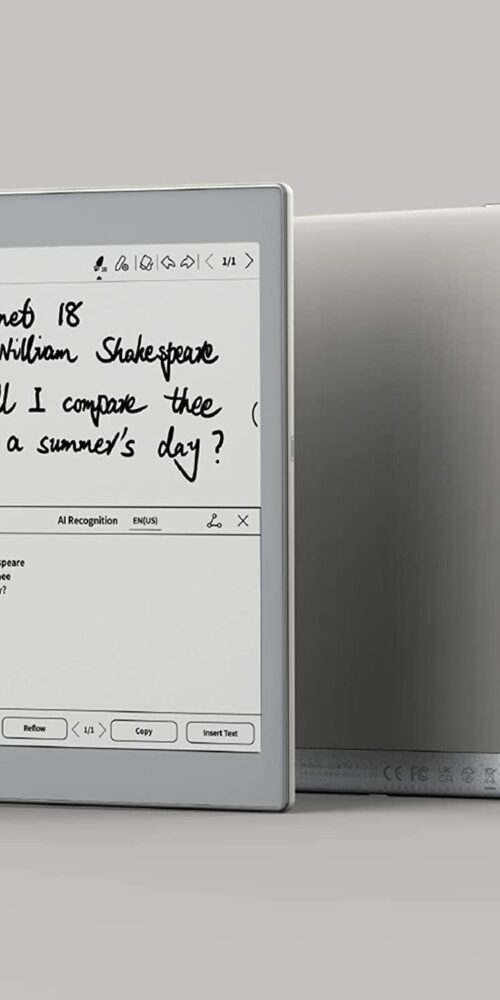 1/1
net 18
William Shakespeare
ll I compare thee
a summer's day?
AI Recognition EN(US)
speare
ee
y?
Reflow 1/1 Copy Insert Text
CE FC UK CA